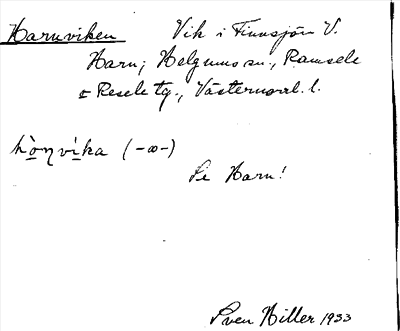 Harnviken Vik i Finnsjön V.
Harn; Helgums sn., Ramsele
o Resele tg., Västernorrl. l.
hòŋvìka (-ꝏ-)
Se Harn!
Sven Hiller 1933